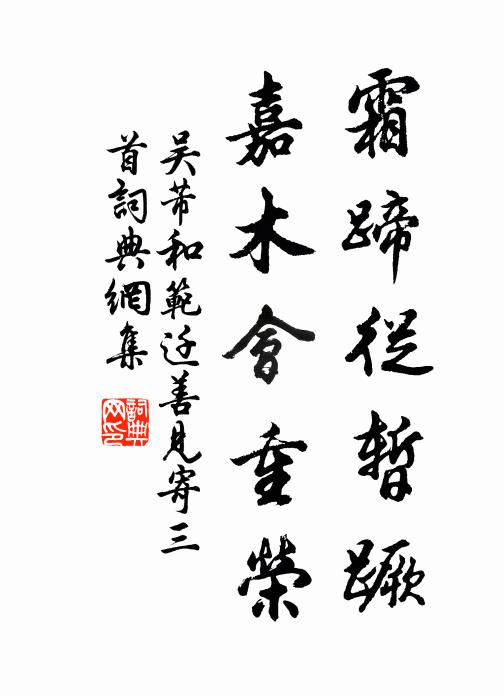 霜蹄從暫蹶
嘉木會重榮
吴芾和範迂善見寄三
首詞典網集
詞典
网印